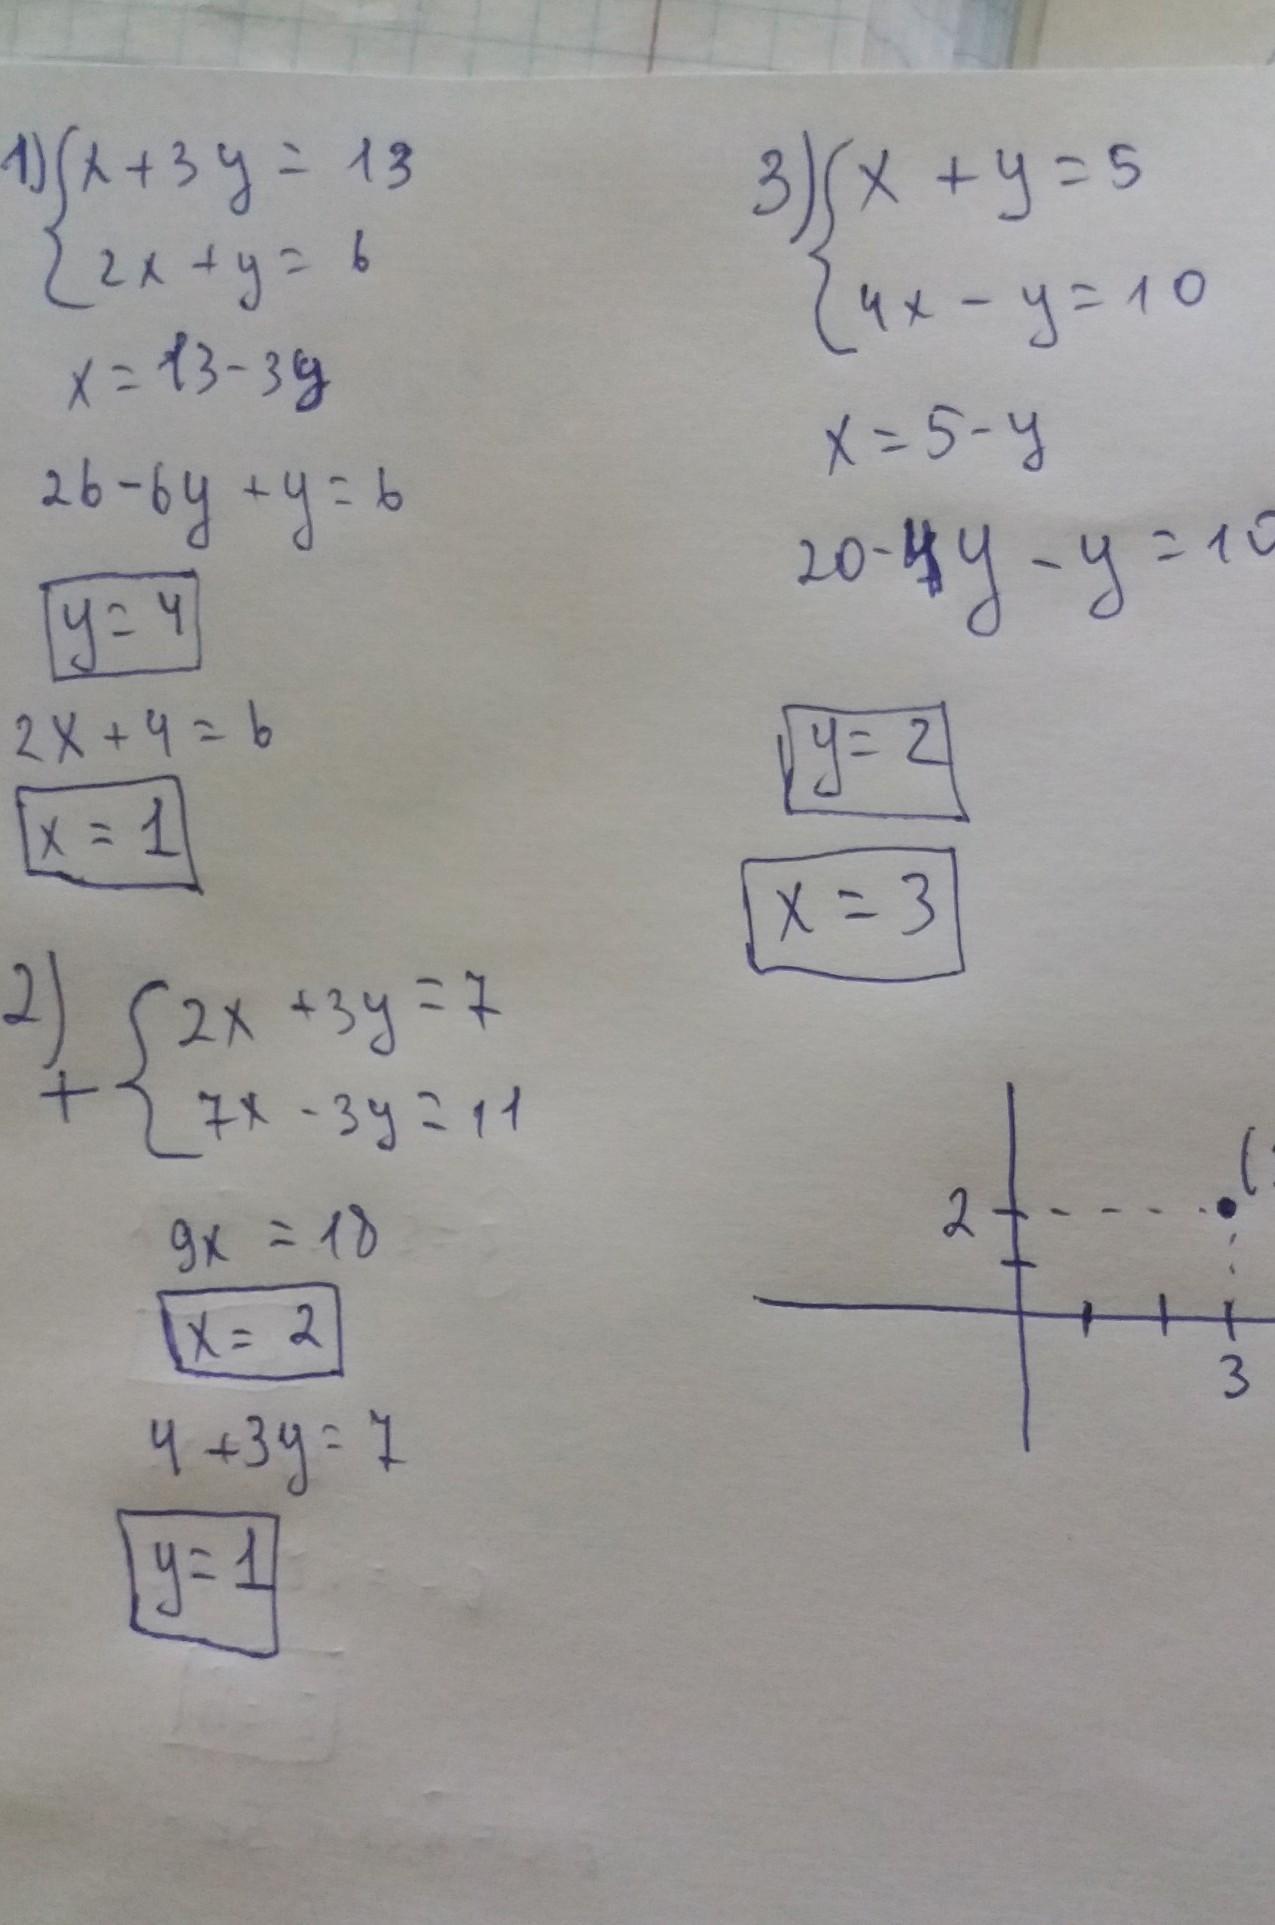 1) { x + 3y = 13
2x + y = 6
x = 13 - 3y
26 - 6y + y = 6
y = 4
2x + 4 = 6
x = 1
2) + { 2x + 3y = 7
7x - 3y = 11
9x = 18
x = 2
4 + 3y = 7
y = 1
3) { x + y = 5
4x - y = 10
x = 5 - y
20 - 4y - y = 10
y = 2
x = 3
2
3